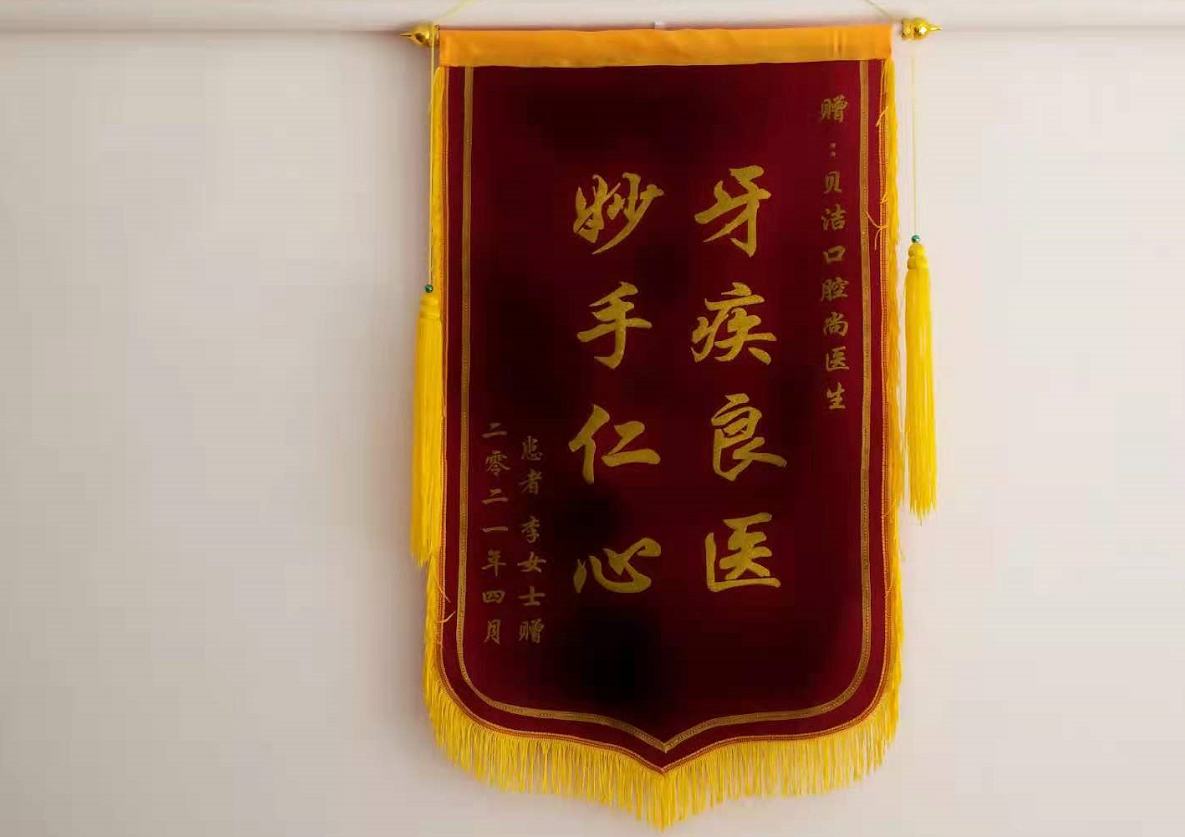 赠：贝洁口腔尚医生
牙疾良医
妙手仁心
患者 李女士赠
二零二一年四月